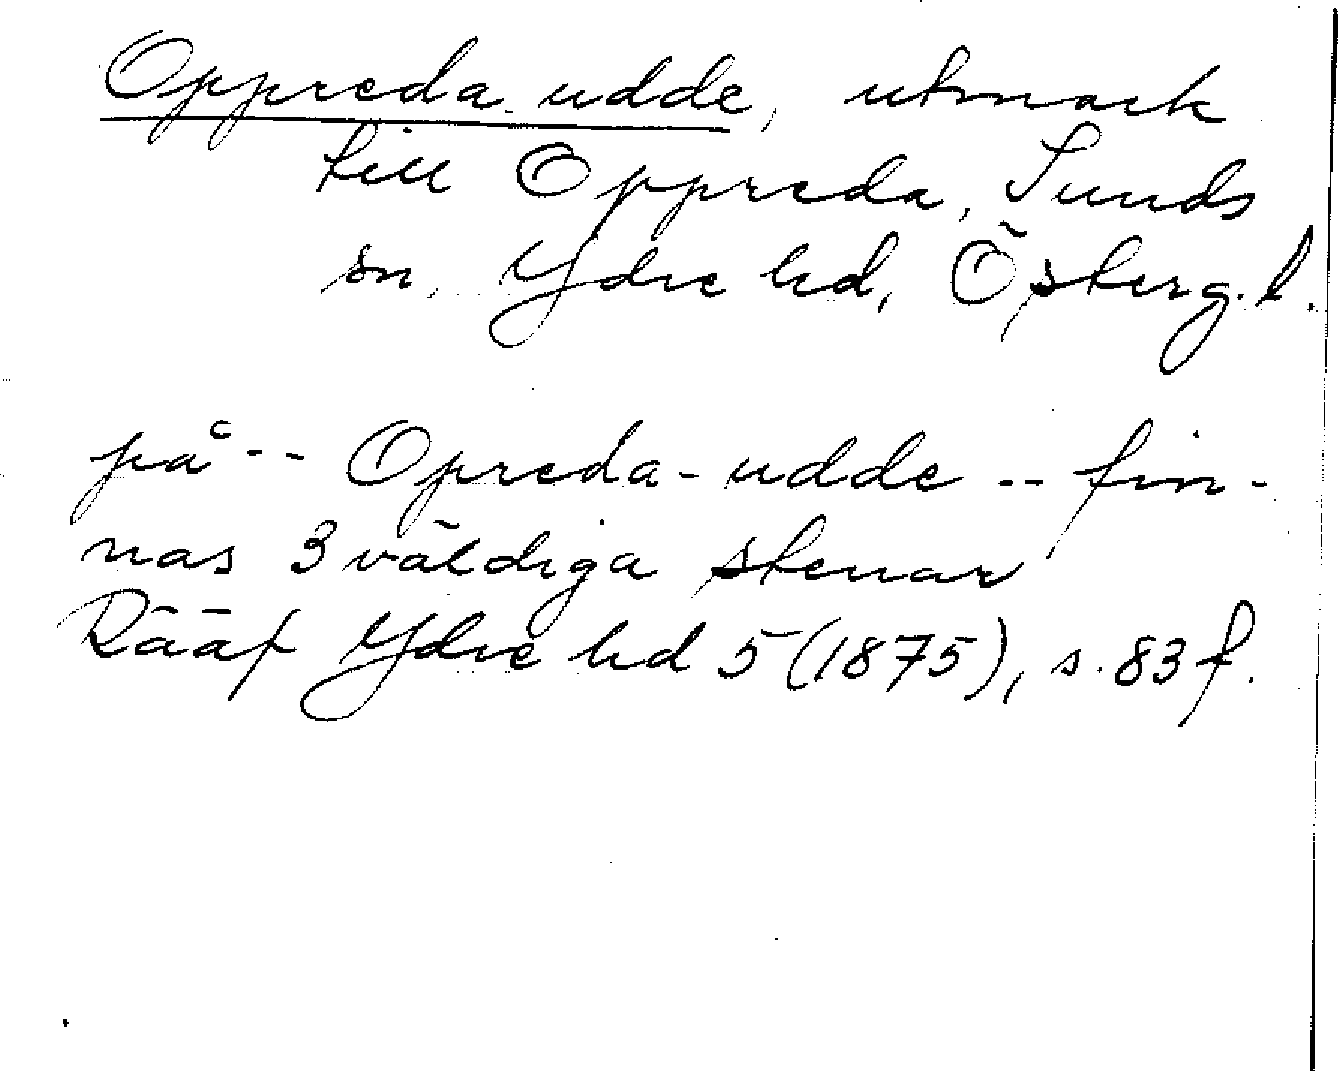 Oppreda-udde, utmark
till Oppreda, Sunds
sn, Ydre hd, Österg. l.
på -- Opreda-udde -- fin-
nas 3 väldiga stenar
Rääf Ydre hd 5 (1875), s. 83 f.